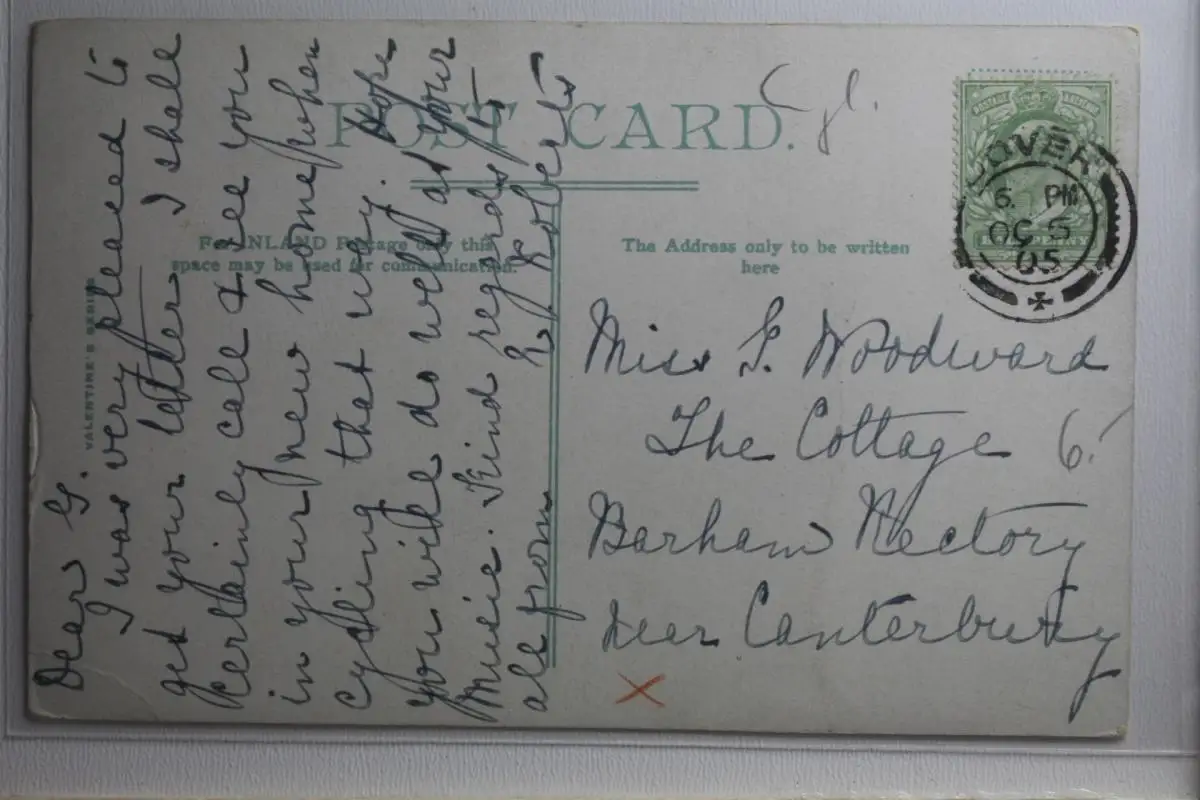 POST CARD.
For INLAND Postage only this
space may be used for communication.
The Address only to be written
here
VALENTINE'S SERIES
Dear G.
I was very pleased to
get your letter I shall
certainly call & see you
in your new home when
cycling that way. Hope
you will do well at your
music. Kind regards to
all from L. Roberts
Miss G. Woodward
The Cottage 6!
Barham Rectory
near Canterbury
X
DOVER
6. PM
OC 5
05